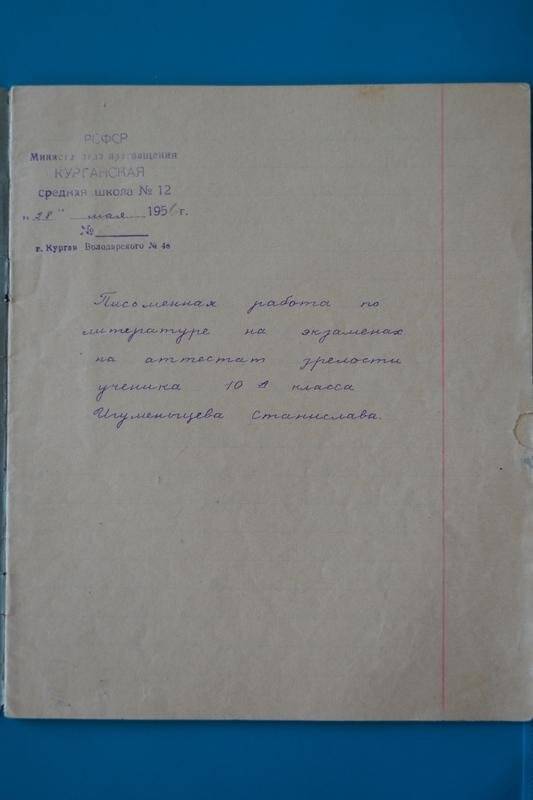 РСФСР
Министерство просвещения
КУРГАНСКАЯ
средная школа № 12
„28" мая 1956 г.
№
г. Курган Володарского № 46
Письменная работа по
литературе на экзаменах
на аттестат зрелости
ученика 10 класса
Игуменьщева Станислава.